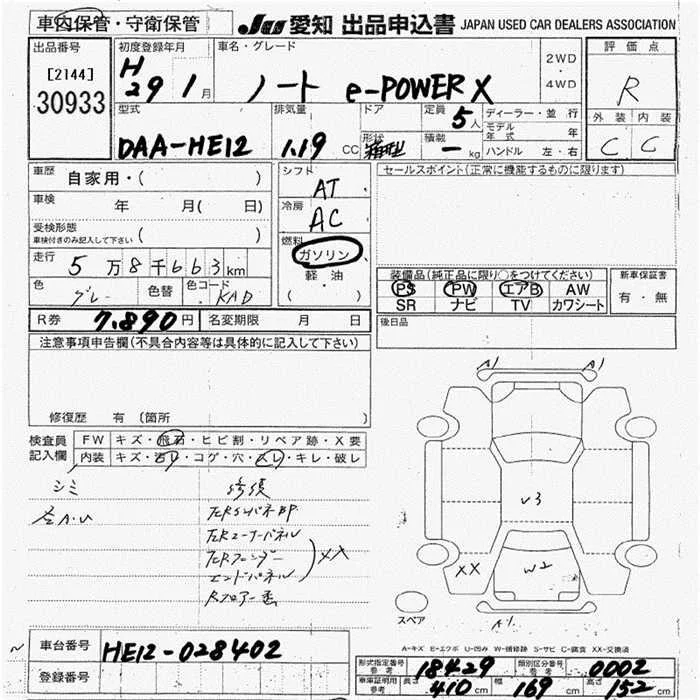 車内保管・守衛保管
JU 愛知 出品申込書 JAPAN USED CAR DEALERS ASSOCIATION
出品番号
[2144]
30933
初度登録年月
H
29 1月
車名・グレード
ノート e-POWER X
2WD
・
4WD
評価点
R
外装 内装
C C
型式
DAA-HE12
排気量
1.19 CC
ドア
形状
箱型
定員
5人
積載
- kg
ディーラー・並行
モデル年式 年
ハンドル 左・右
車歴 自家用・( )
車検 年 月( 日)
受検形態
車検付きのみ記入して下さい ( )
走行 5万8千663km
色 グレー 色替 色コード KAD
シフト
AT
冷房
AC
燃料
ガソリン
軽油
( ・ )
セールスポイント(正常に機能するものに限ります)
装備品(純正品に限り○をつけてください)
PS PW エアB AW
SR ナビ TV カワシート
新車保証書
有・無
R券 7.890円 名変期限 月 日
後日品
注意事項申告欄(不具合内容等は具体的に記入して下さい)
修復歴 有〔箇所 〕
検査員記入欄
FW キズ・飛石・ヒビ割・リペア跡・X要
内装 キズ・汚レ・コゲ・穴・スレ・キレ・破レ
シミ
修復
左A.U
XX
A1 A1
U3
XX
W2
スペア
A-キズ E-エクボ U-凹み W-補修跡 S-サビ C-腐食 XX-交換済
車台番号 HE12-028402
登録番号
形式指定番号 参考 18429
類別区分番号 参考 0002
車庫証明用 参考 長さ 410cm 幅 169cm 高さ 152cm